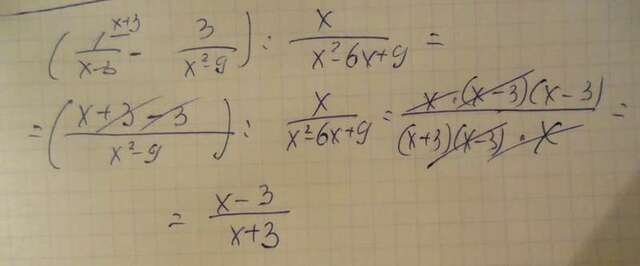 (1^{x+3}/(x-3) - 3/(x²-9)) : x/(x²-6x+9) =
= ((x+3-3)/(x²-9)) : x/(x²-6x+9) = (x·(x-3)(x-3))/((x+3)(x-3)·x) =
= (x-3)/(x+3)